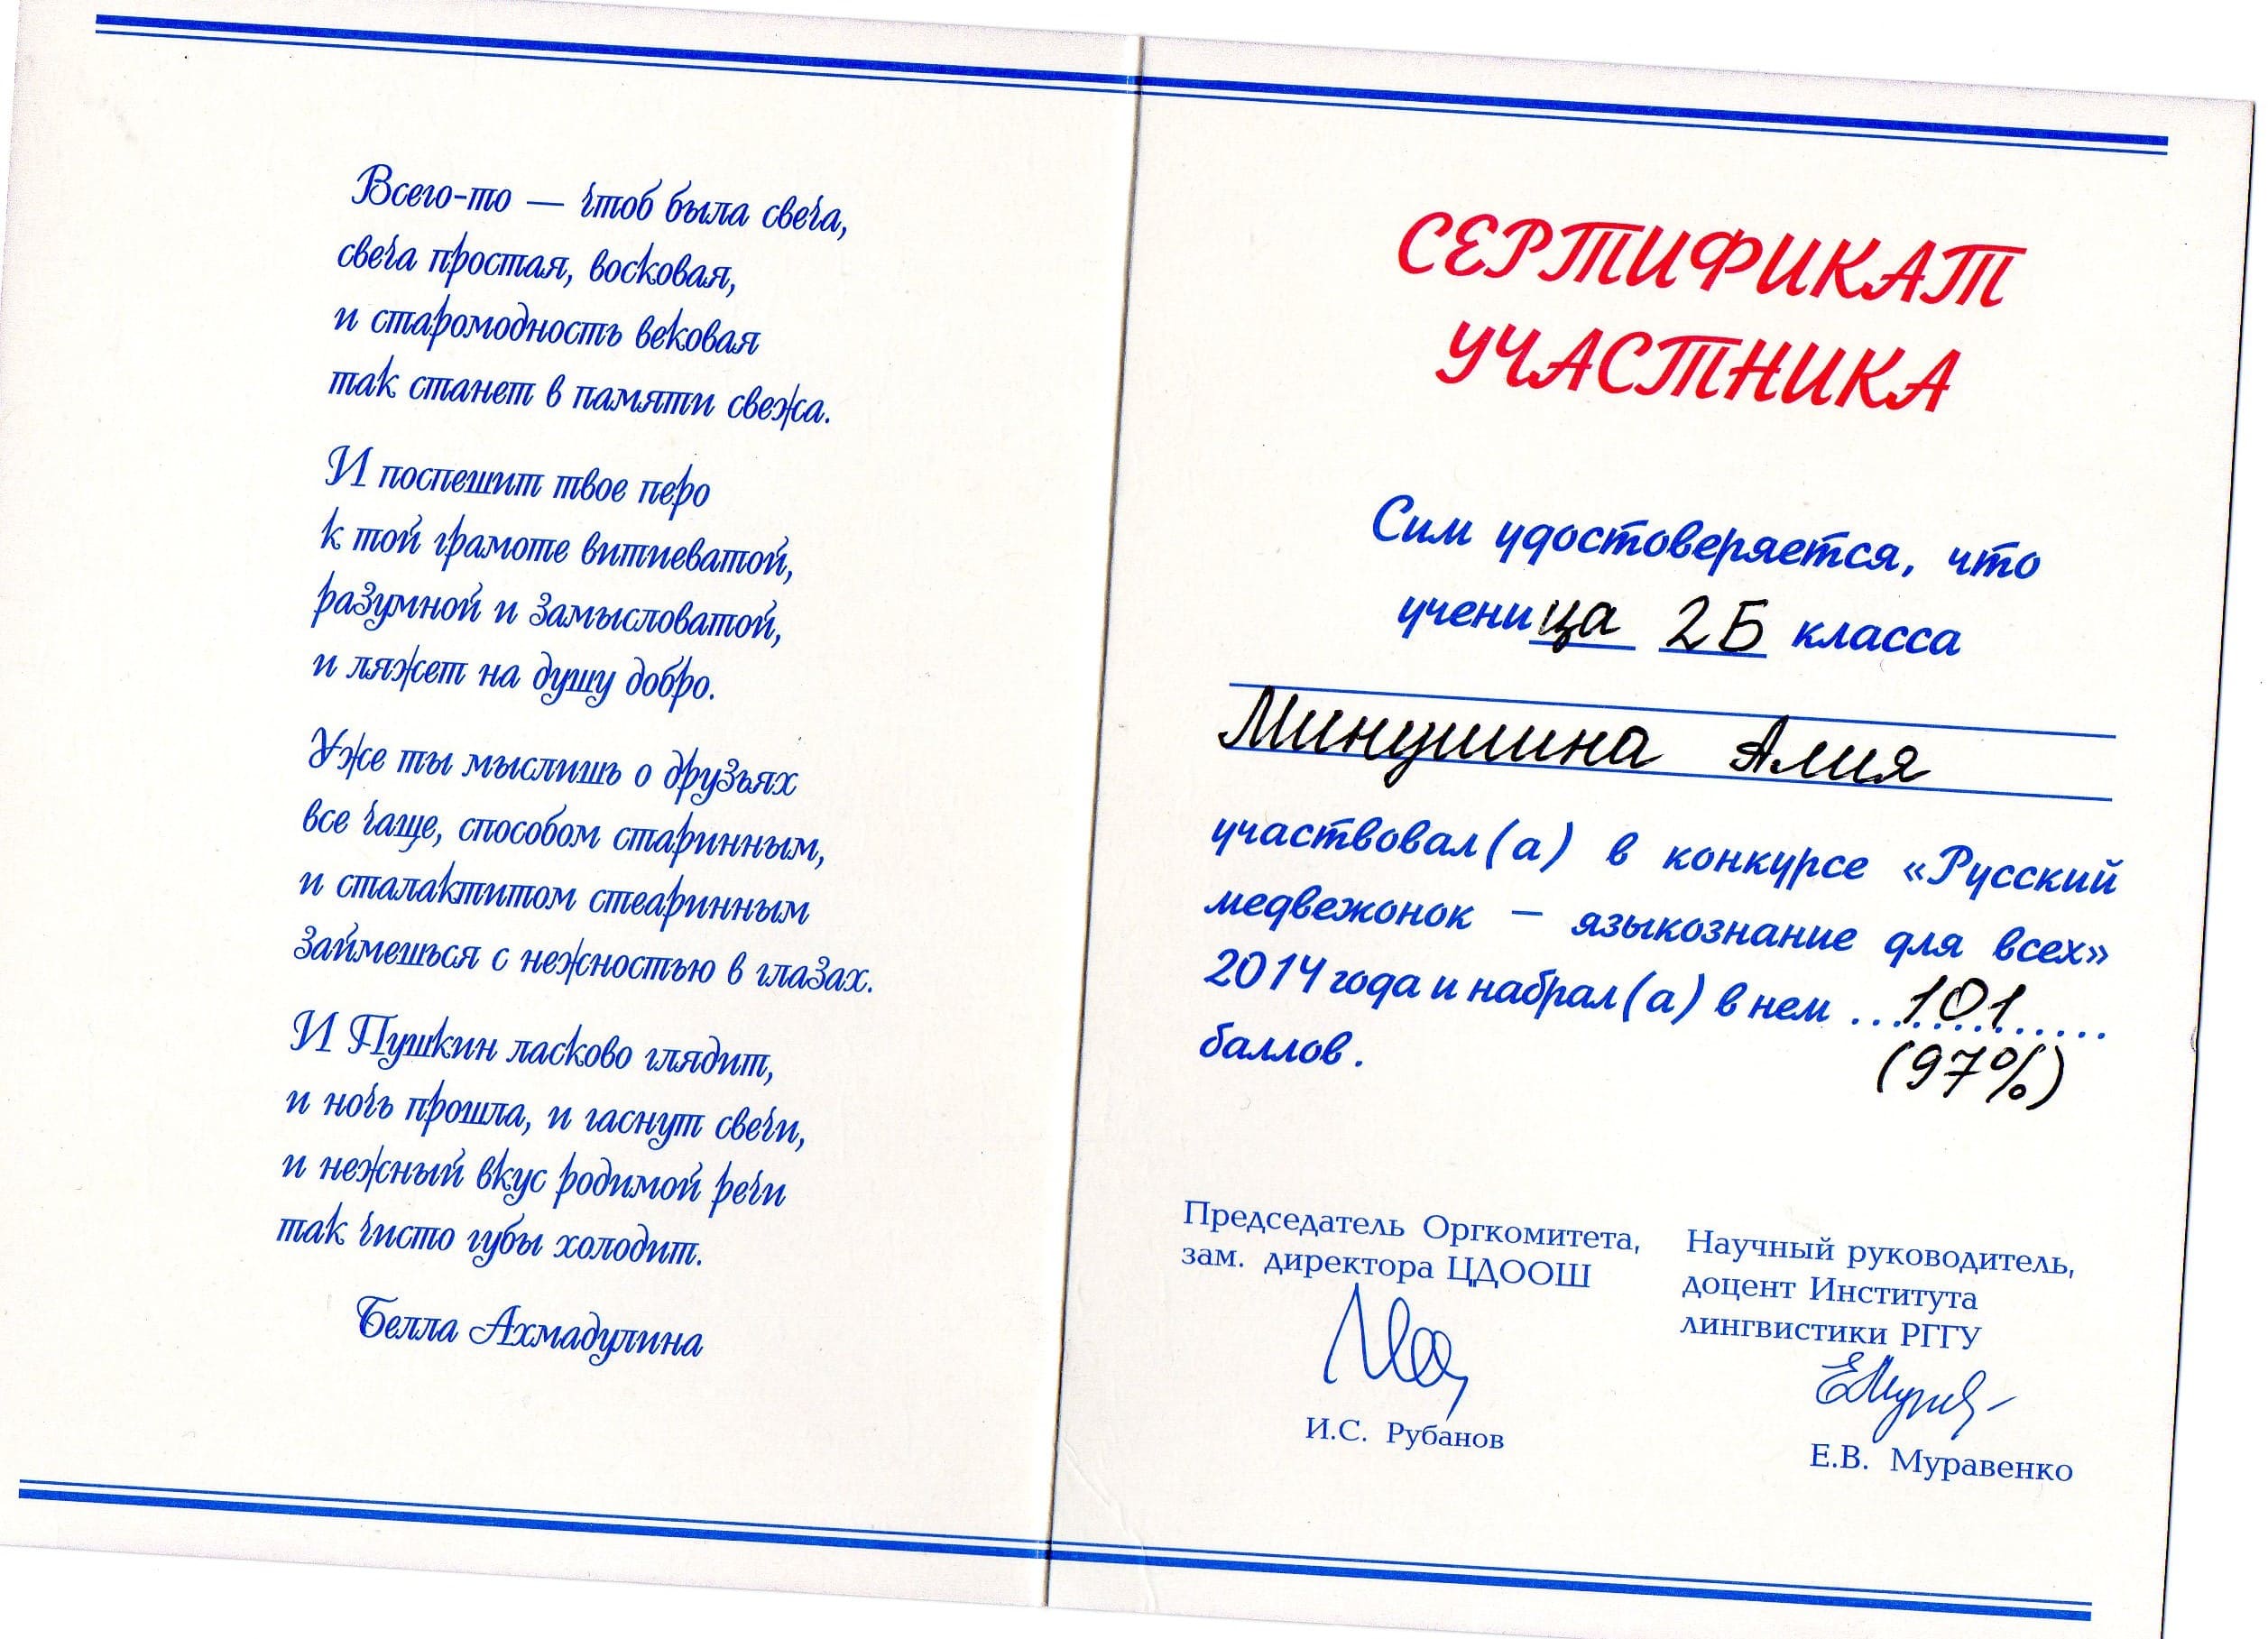 Всего-то — чтоб была свеча,
свеча простая, восковая,
и старомодность вековая
так станет в памяти свежа.
И поспешит твое перо
к той грамоте витиеватой,
разумной и замысловатой,
и ляжет на душу добро.
Уже ты мыслишь о друзьях
все чаще, способом старинным,
и сталактитом стеаринным
займешься с нежностью в глазах.
И Пушкин ласково глядит,
и ночь прошла, и гаснут свечи,
и нежный вкус родимой речи
так чисто губы холодит.
Белла Ахмадулина
СЕРТИФИКАТ
УЧАСТНИКА
Сим удостоверяется, что
ученица 2Б класса
Минушина Алия
участвовал(а) в конкурсе «Русский
медвежонок – языкознание для всех»
2014 года и набрал(а) в нем ...101...
баллов.
(97%)
Председатель Оргкомитета,
зам. директора ЦДООШ
И.С. Рубанов
Научный руководитель,
доцент Института
лингвистики РГГУ
Е.В. Муравенко